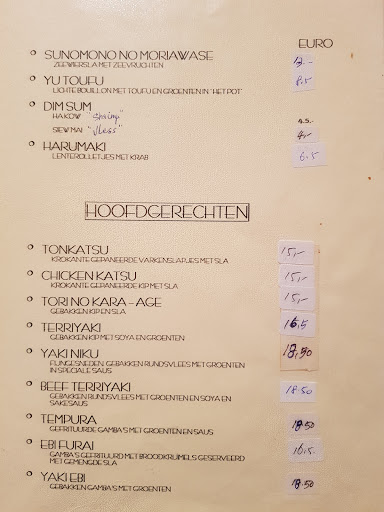 EURO
SUNOMONO NO MORIAWASE
ZEEWIERSLA MET ZEEVRUCHTEN
YU TOUFU 8,5
LICHTE BOUILLON MET TOUFU EN GROENTEN IN 'HET POT'
DIM SUM
HA KOW "shrimp" 4,5.-
SIEW MAI 4,-
HARUMAKI 6,5
LENTEROLLETJES MET KRAB
HOOFDGERECHTEN
TONKATSU 15,-
KROKANTE GEPANEERDE VARKENSLAPJES MET SLA
CHICKEN KATSU 15,-
KROKANTE GEPANEERDE KIP MET SLA
TORI NO KARA - AGE 15,-
GEBAKKEN KIP EN SLA
TERRIYAKI 16,5
GEBAKKEN KIP MET SOYA EN GROENTEN
YAKI NIKU 18,50
FLINGESNEDEN GEBAKKEN RUNDSVLEES MET GROENTEN
IN SPECIALE SAUS
BEEF TERRIYAKI 18.50
GEBAKKEN RUNDSVLEES MET GROENTEN EN SOYA EN
SAKESAUS
TEMPURA 18.50
GEFRITUURDE GAMBA'S MET GROENTEN EN SAUS
EBI FURAI 16,5.
GAMBA'S GEFRITUURD MET BROODKRUIMELS GESERVEERD
MET GEMENGDE SLA
YAKI EBI 18.50
GEBAKKEN GAMBA'S MET GROENTEN